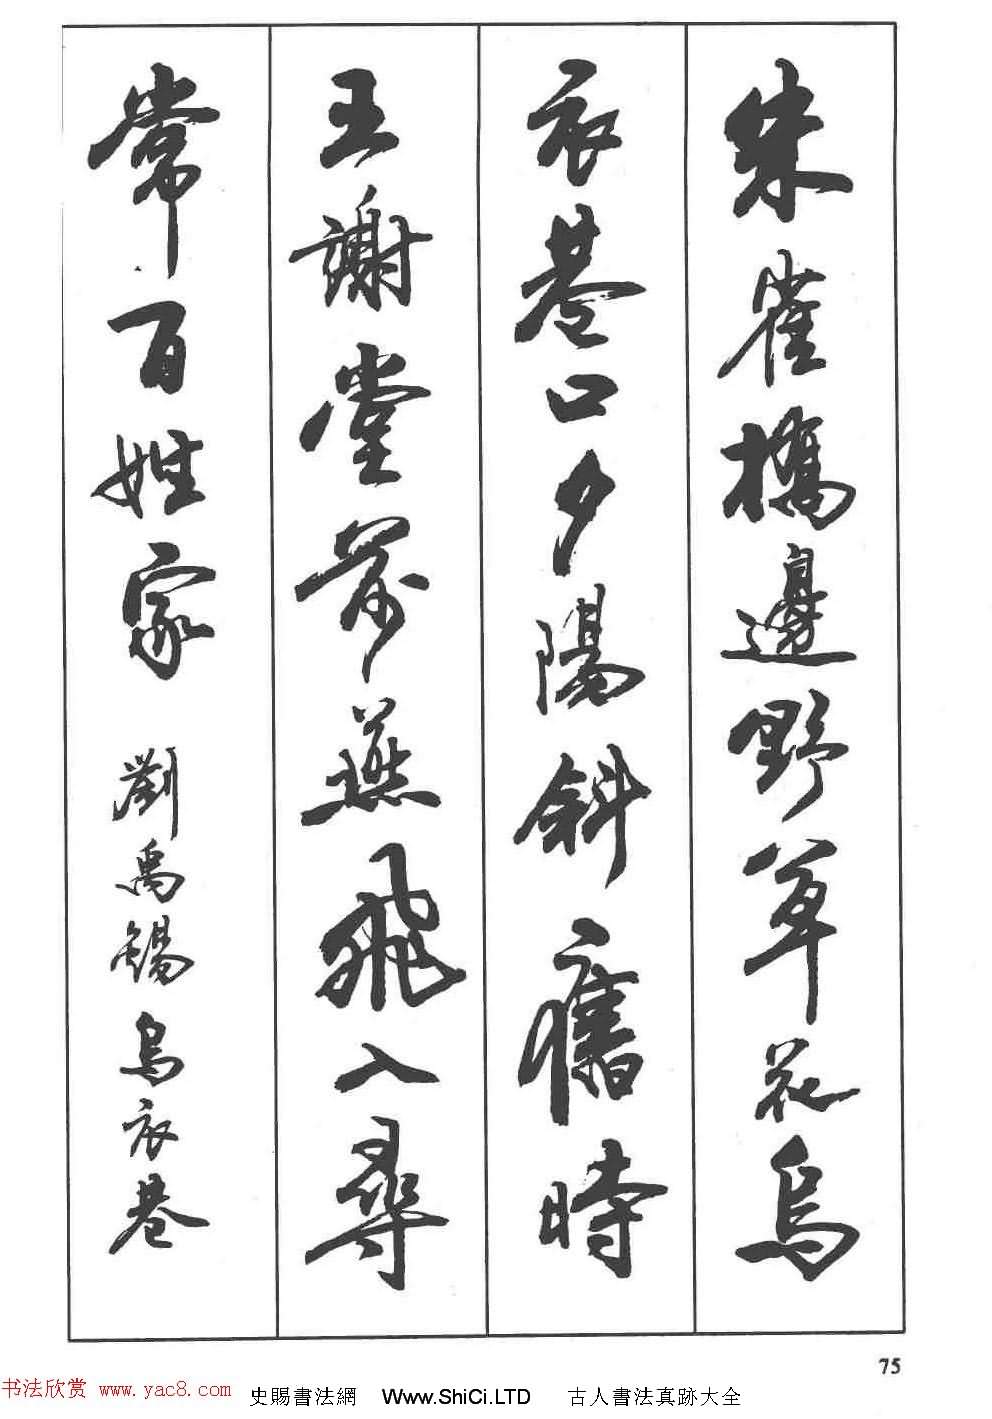 朱雀橋邊野草花烏
衣巷口夕陽斜舊時
王謝堂前燕飛入尋
常百姓家 劉禹錫烏衣巷
75
书法欣赏 www.yac8.com
史賜書法網 Www.ShiCi.LTD 古人書法真跡大全